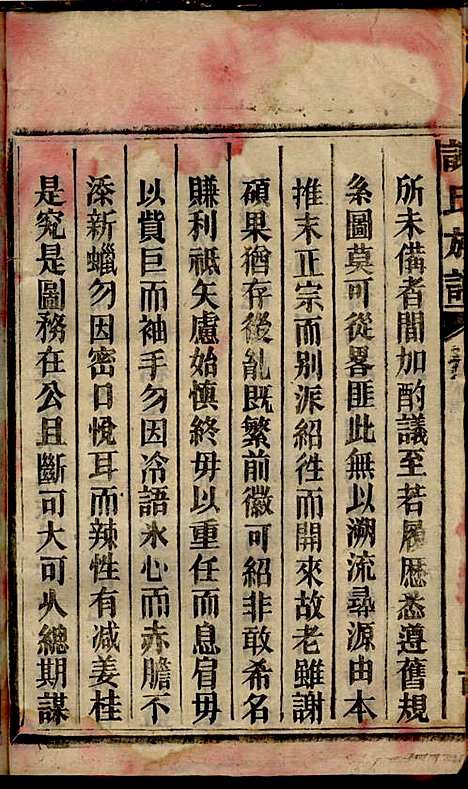 所未備者間加酌議至若履歷悉遵舊規
糸圖莫可從畧匪此無以溯流尋源由本
推末正宗而别派紹徃而開來故老雖謝
碩果猶存後亂既繁前徽可紹非敢希名
賺利祗矢慮始慎終毋以重任而息肩毋
以貲巨而袖手勿因冷語氷心而赤膽不
添新蠟勿因密口悅耳而辣性有减姜桂
是究是圖務在公且斷可大可久總期謀